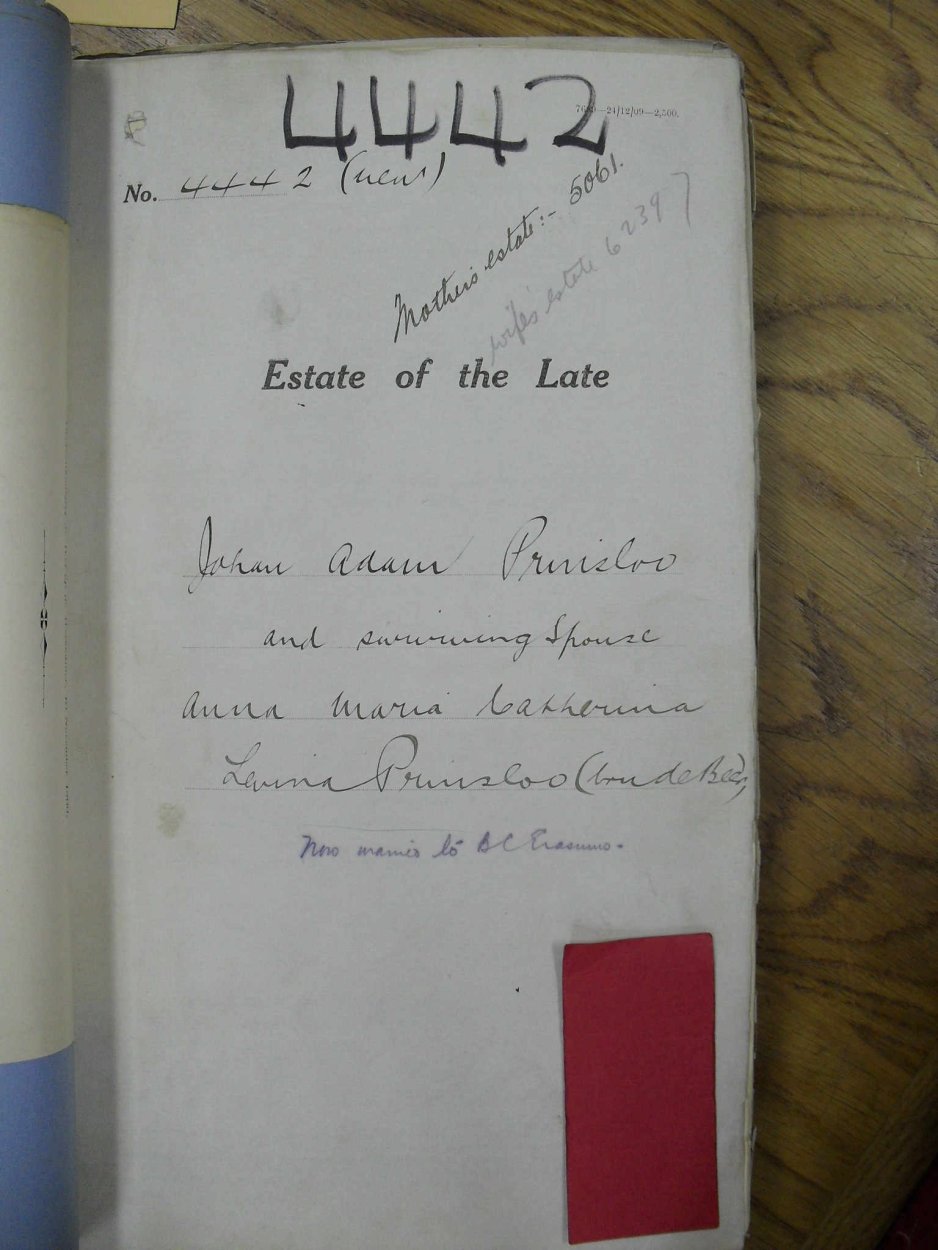 4442
7689—24/12/09—2,500.
No. 4442 (new)
Mother's estate:- 5061.
wife's estate 6239
Estate of the Late
Johan Adam Prinsloo
and surviving Spouse
Anna Maria Catherina
Levina Prinsloo (born de Beer)
Now married to B C Erasmus.